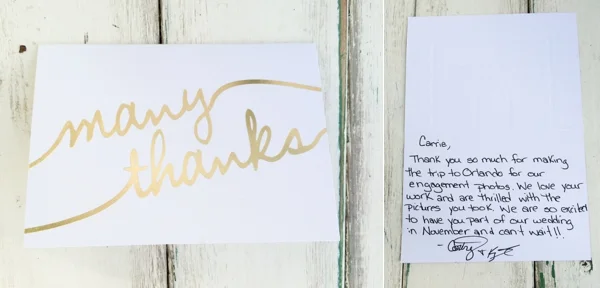 many
thanks
Carrie,
Thank you so much for making
the trip to Orlando for our
engagement photos. We love your
work and are thrilled with the
pictures you took. We are so excited
to have you part of our wedding
in November and can't wait!!!